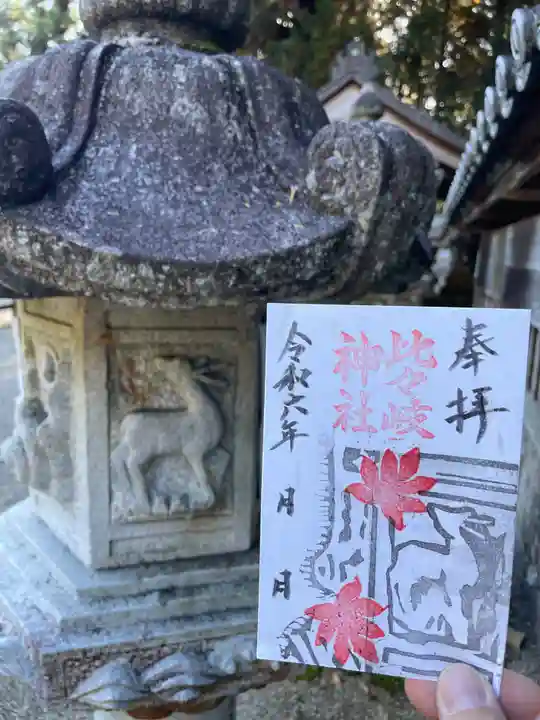 奉拝
比々岐
神社
令和六年
月
日